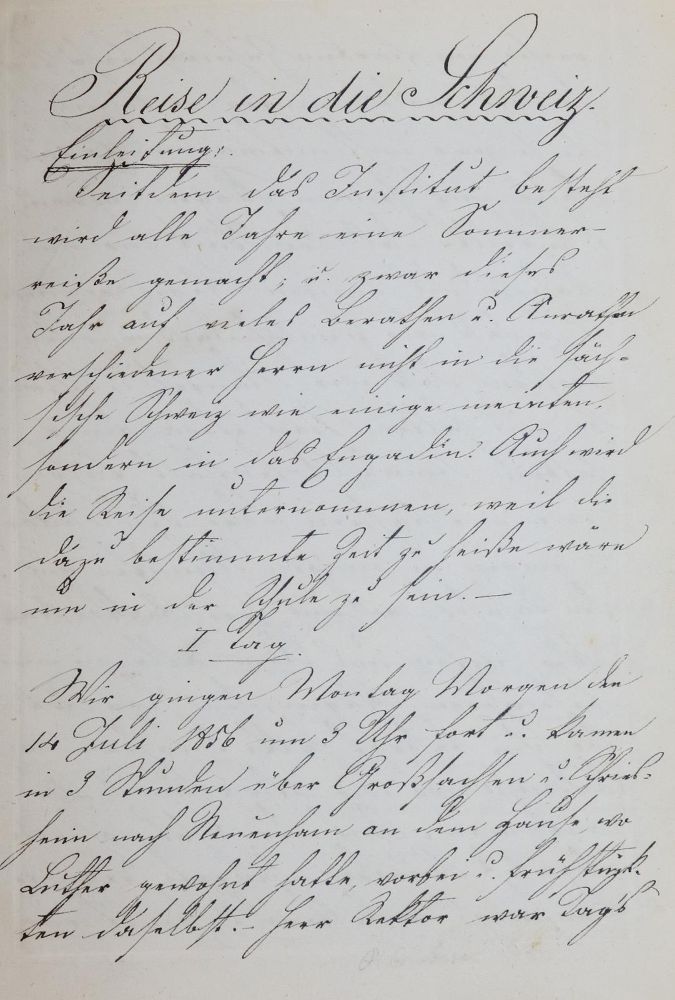 Reise in die Schweiz.
Einleitung:
Seitdem das Institut besteht
wird alle Jahre eine Sommer-
reiße gemacht; u. zwar dieses
Jahr auf vieles Berathen u. Anrathen
verschiedener Herrn nicht in die säch-
sische Schweiz wie einige meinten,
sondern in das Engadin. Auch wird
die Reise unternommen, weil die
dazu bestimmte Zeit zu heiße wäre
um in der Schule zu sein. —
I Tag.
Wir gingen Montag Morgen den
14 Juli 1856 um 3 Uhr fort u. kamen
in 3 Stunden über Großsachsen u. Schries-
heim nach Neuenham an dem Hause, wo
Luther gewohnt hatte, vorbei u. frühstück-
ten daselbst. – Herr Rektor war Tags